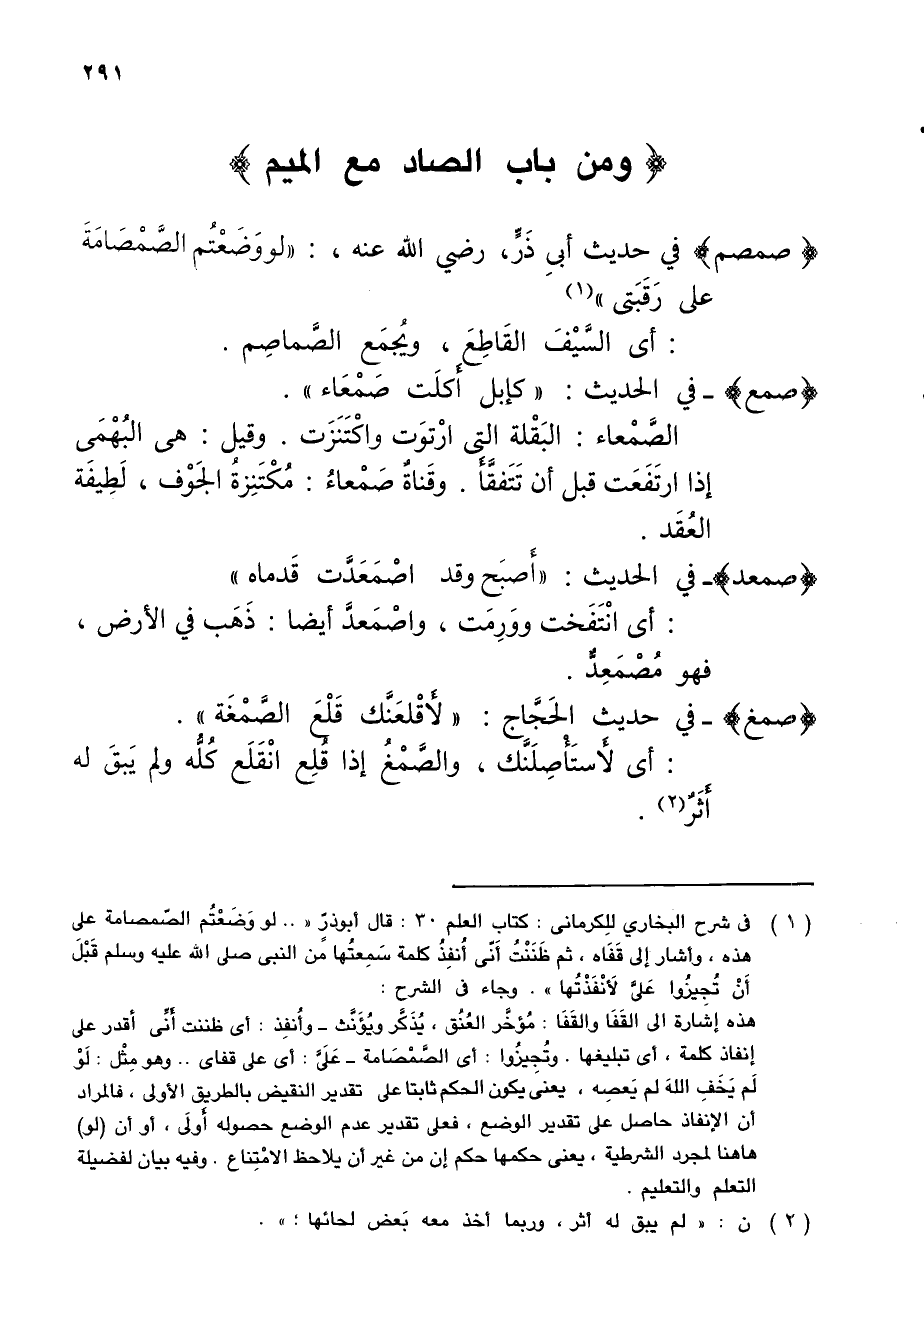 ٢٩١
﴿ ومن باب الصاد مع الميم ﴾
﴿ صمصم﴾ في حديث أبي ذَرٍّ، رضي الله عنه ، : «لو وَضَعْتُم الصَّمْصَامَةَ
على رَقَبَتى »(١)
: أى السَّيْفَ القَاطِعَ ، ويُجمَع الصَّماصِم .
﴿صمع﴾ ـ في الحديث : « كإبل أَكلَت صَمْعَاء » .
الصَّمْعاء : البَقْلة التى ارْتوَت واكْتَنَزَت . وقيل : هى البُهْمَى
إذا ارتَفَعت قبل أن تَتَفقَّأَ . وقَناةٌ صَمْعاءُ : مُكْتَنِزةُ الجَوْف ، لَطِيفَة
العُقَد .
﴿صمعد﴾ـ في الحديث : «أَصبَح وقد اصْمَعَدَّت قَدماه »
: أى انْتَفَخت ووَرِمَت ، واصْمَعدَّ أيضا : ذَهَب في الأرض ،
فهو مُصْمَعِدٌّ .
﴿صمغ﴾ ـ في حديث الحَجَّاج : « لَأقْلعَنَّك قَلْعَ الصَّمْغَة » .
: أى لَأستَأْصِلَنَّك ، والصَّمْغُ إذا قُلِع انْقَلَع كُلُّه ولم يَبقَ له
أَثَرٌ(٢) .
( ١ ) فى شرح البخاري للكرمانى : كتاب العلم ٣٠ : قال أبوذرّ « .. لو وَضَعْتُم الصّمصامة على
هذه ، وأشار إلى قَفَاه ، ثم ظَنَنْتُ أَنّى أُنفِذُ كلمة سَمِعتُها من النبى صلى الله عليه وسلم قَبْلَ
أَنْ تُجِيزُوا عَليَّ لأَنْفَذْتُها » . وجاء فى الشرح :
هذه إشارة الى القَفَا والقَفَا : مُؤَخَّر العُنُق ، يُذَكَّر ويُؤَنَّث ـ وأُنفِذ : أى ظننت أَنِّى أقدر على
إنفاذ كلمة ، أى تبليغها . وتُجِيزُوا : أى الصَّمْصَامة ـ عَلَيَّ : أى على قفاى .. وهو مِثْل : لَوْ
لَم يَخَفِ اللهَ لم يَعصِه ، يعنى يكون الحكم ثابتا على تقدير النقيض بالطريق الأولى ، فالمراد
أن الإنفاذ حاصل على تقدير الوضع ، فعلى تقدير عدم الوضع حصوله أَولَى ، أو أن (لو)
هاهنا لمجرد الشرطية ، يعنى حكمها حكم إن من غير أن يلاحظ الامْتِناع . وفيه بيان لفضيلة
التعلم والتعليم .
( ٢ ) ن : « لم يبق له أثر ، وربما أخذ معه بَعض لحائها ؛ » .